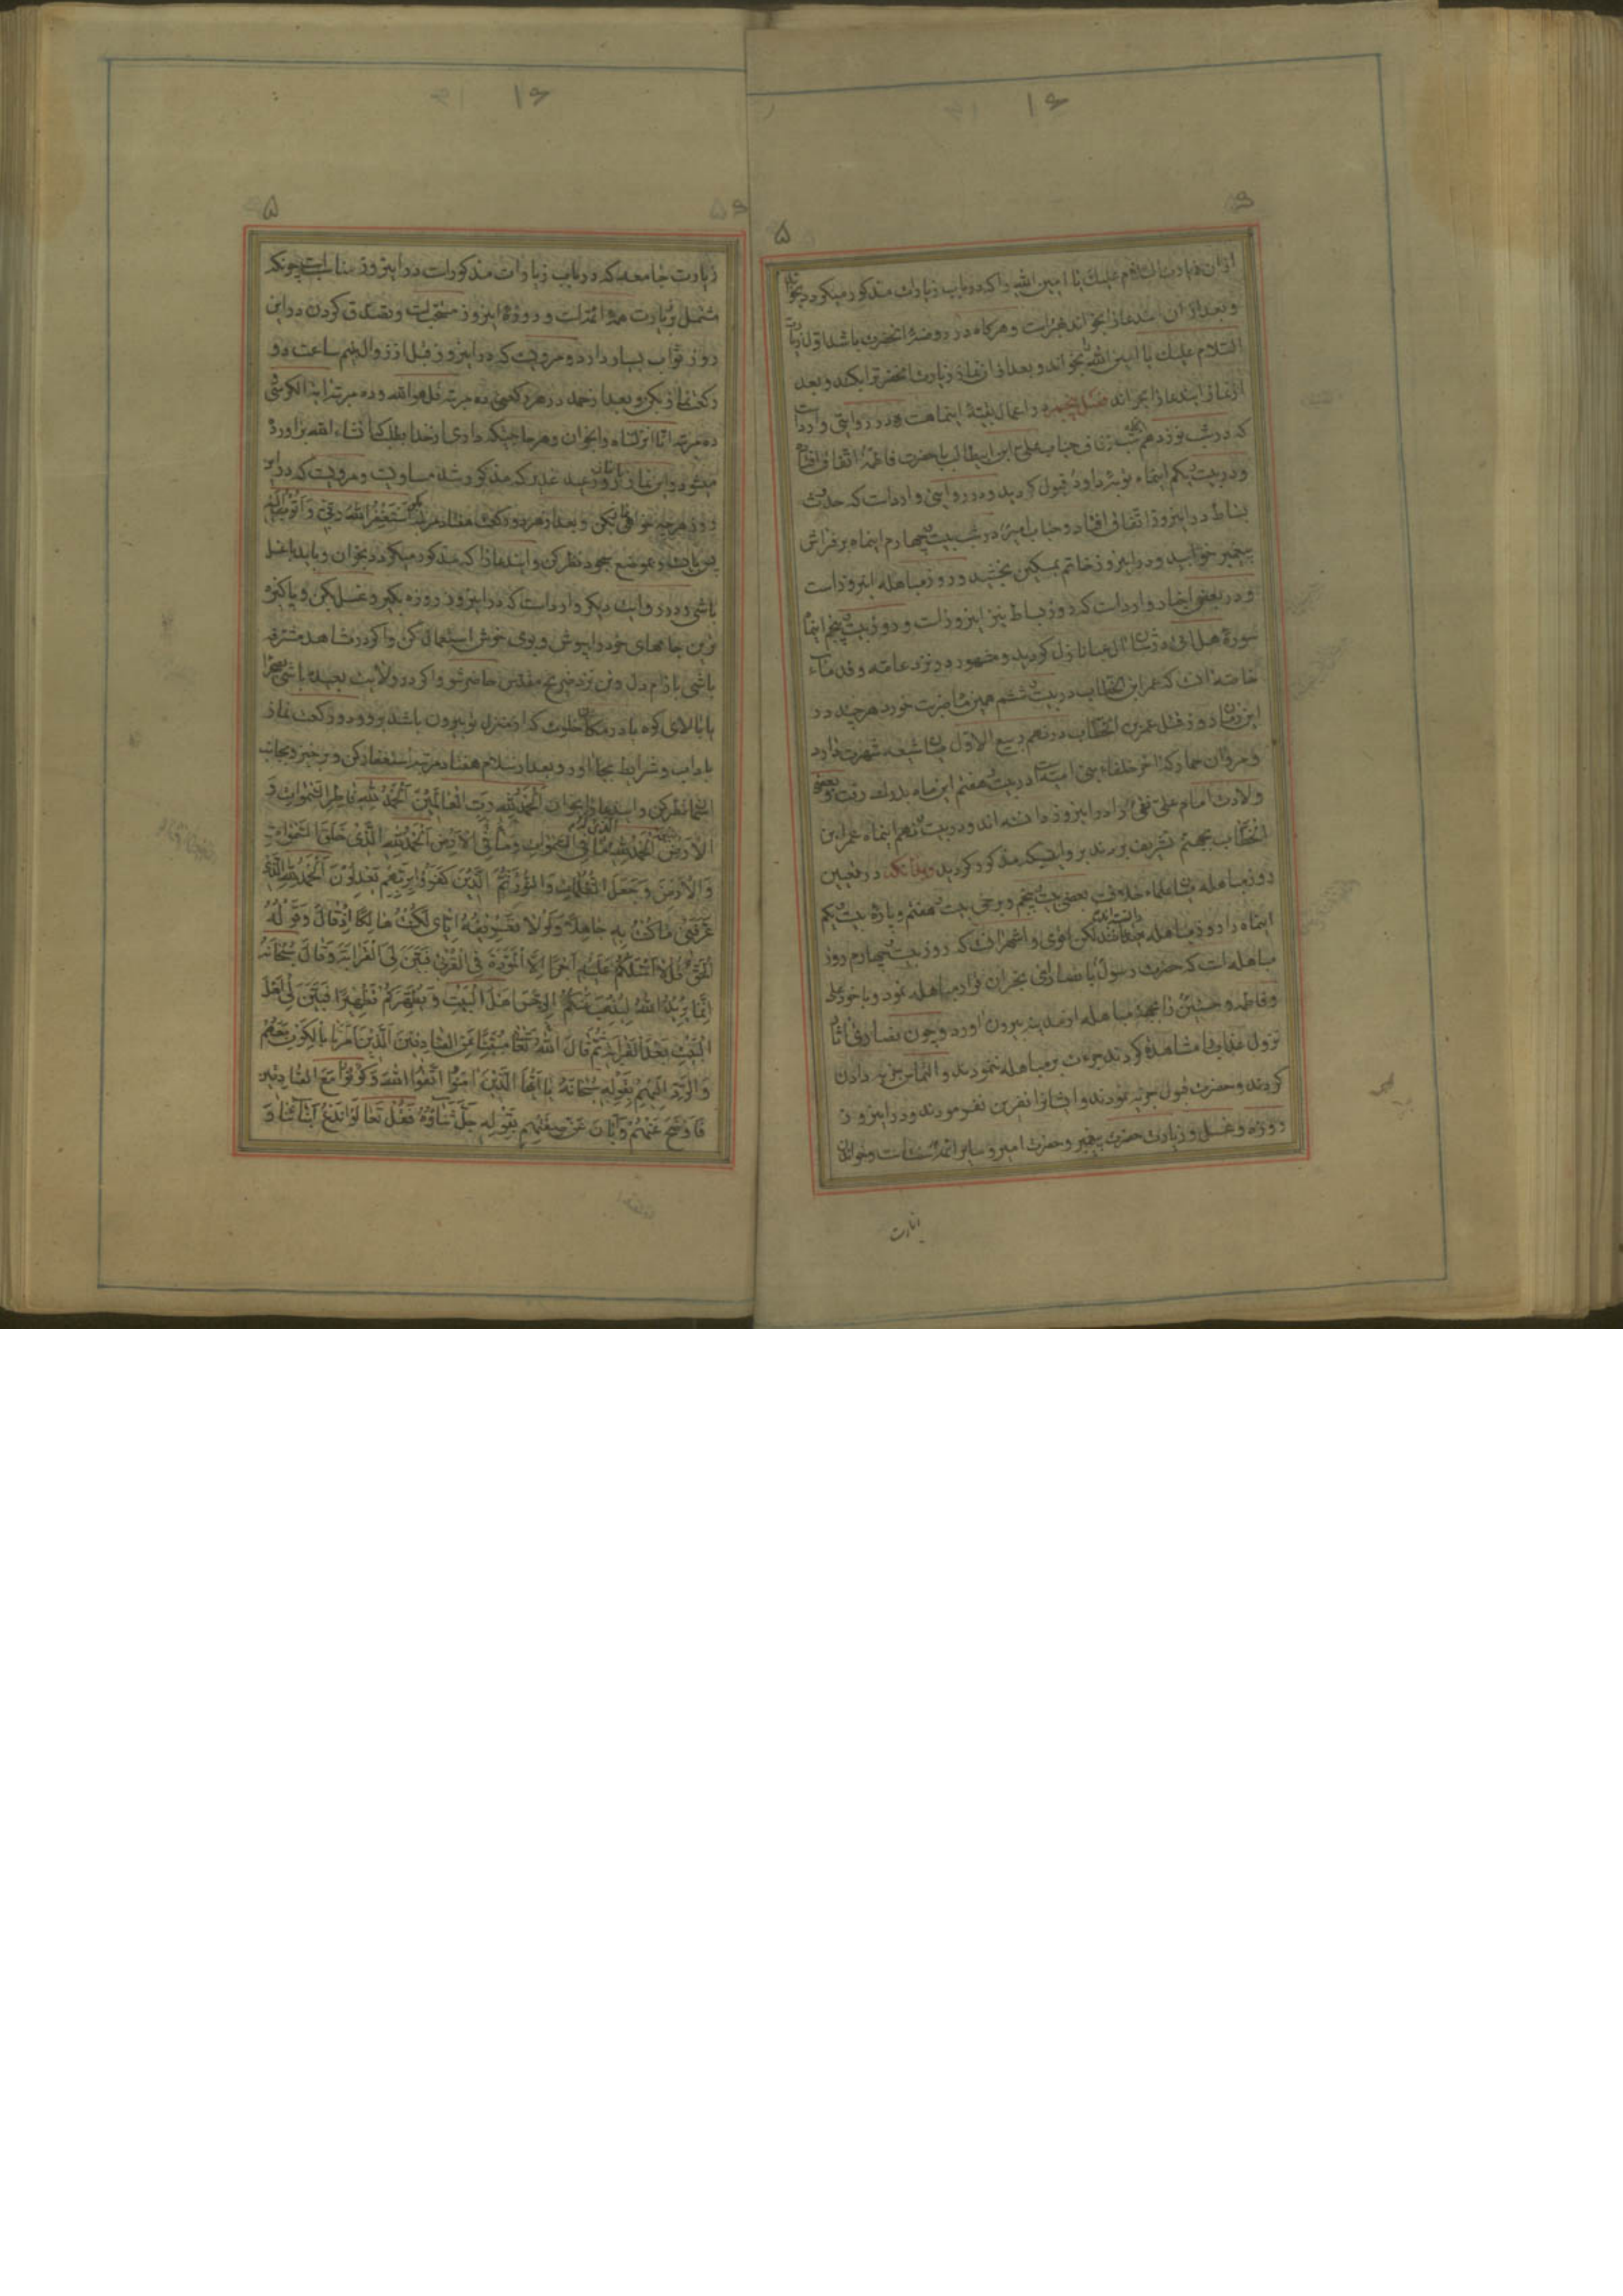 ۱۶
۶
۵
از ان زیارت السلام علیک یا امین الله را که در باب زیارات مذکور میکردد بخواند
و بعد از ان این دعا را بخواند بهتر است و هرکاه در روضهٔ انحضرت باشد اول زیارت
السلام علیک یا امین الله بخواند و بعد از ان نماز زیارت انحضرترا بکند و بعد
از نماز این دعا را بخواند فصل پنجم در اعمال بقیهٔ اینماهست در روایتی وارد است
که در شب نوزدهم زفاف جناب علی ابن ابیطالب با حضرت فاطمه اتفاق افتاد
و در بیست یکم اینماه توبهٔ داود قبول کردید و در روایتی وارد است که حدیث
بساط در اینروز اتفاق افتاد و جناب امیر در شب بیست چهارم اینماه بر فراش
پیغمبر خوابید و در اینروز خاتم بمسکین بخشید و روز مباهله اینروز است
و در بعضی اخبار وارد است که روز بساط نیز اینروز است و روز بیست پنجم اینماه
سورهٔ هل اتی در شان ال عبا نازل کردید و مشهور در نزد عامه و قدماء
خاصه انست که عمر ابن الخطاب در بیست ششم همین ماه ضربت خورد هرچند در
این زمان روز قتل عمر بن الخطاب در نهم ربیع الاول میان شیعه شهرت دارد
و مروان حمار که اخر خلفاء بنی امیه است در بیست هفتم این ماه بدرک رفت و بعضی
ولادت امام علی نقی را در اینروز دانسته اند و در بیست نهم اینماه عمر ابن
الخطاب بجهنم تشریف بردند بروایتیکه مذکور کردید و بدانکه در تعیین
روز مباهله میان علماء خلافست بعضی بیست پنجم و برخی بیست هفتم و پارهٔ بیست یکم
اینماه را روز مباهله دانسته اند لکن اقوی و اشهر انست که روز بیست چهارم روز
مباهله است که حضرت رسول با نصارای نجران قرار مباهله نمود و با خود علی
و فاطمه و حسنین را بجهة مباهله از مدینه بیرون اورد و چون نصاری اثار
نزول عذاب را مشاهده کردند جرءت بر مباهله ننمودند و التماس جزیه دادن
کردند و حضرت قبول جزیه نمودند و ایشانرا نفرین نفرمودند و در اینروز
روزه و غسل و زیارت حضرت پیغمبر و حضرت امیر و سایر ائمه سنت است و خواندن
زیارت
۱۶
۶
۵
زیارت جامعه که در باب زیارات مذکور است در اینروز مناسب است چونکه
مشتمل بزیارت همهٔ ائمه است و روزهٔ اینروز مستحب است و تصدق کردن در این
روز ثواب بسیار دارد و مرویست که در اینروز قبل از زوال بنیم ساعت دو
رکعت نماز بکن و بعد از حمد در هر رکعتی ده مرتبه قل هو الله و ده مرتبه ایة الکرسی
ده مرتبه انا انزلناه را بخوان و هر حاجتیکه داری از خدا بطلب که انشاء الله براورده
میشود و این نماز با نماز روز عید غدیر که مذکور شد مساویست و مرویست که در این
روز هرچه خواهی نماز بکن و بعد از هر دو رکعت هفتاد مرتبه بکو استغفر الله ربی و اتوب الیه
پس بایست و بموضع سجود نظر کن و این دعا را که مذکور میکردد بخوان و باید با غسل
باشی و در روایت دیکر وارد است که در اینروز روزه بکیر و غسل بکن و پاکیزه
ترین جامهای خود را بپوش و بوی خوش استعمال کن و اکر در مشاهد مشرفه
باشی با ارام دل و تن نزد ضریح مقدس حاضر شو و اکر در ولایت بعیده باشی بصحرا
یا بالای کوه یا در مکان خلوت که از منزل تو بیرون باشد برو و دو رکعت نماز
باداب و شرایط بجا اور و بعد از سلام هفتاد مرتبه استغفار کن و برخیز و بجانب
اسمان نظر کن و این دعا را بخوان اَلْحَمْدُ لِلّٰهِ رَبِّ الْعالَمِیْنَ اَلْحَمْدُ لِلّٰهِ فاطِرِ السَّمٰواتِ وَ
الْاَرْضِ اَلْحَمْدُ لِلّٰهِ الَّذی لَهُ مٰا فِی السَّمٰواتِ وَمٰا فِی الْاَرْضِ اَلْحَمْدُ لِلّٰهِ الَّذی خَلَقَ السَّمٰواتِ
وَالْاَرْضَ وَجَعَلَ الظُّلُماتِ وَالنُّوْرَ ثُمَّ الَّذیْنَ کَفَرُوْا بِرَبِّهِمْ یَعْدِلُوْنَ اَلْحَمْدُ لِلّٰهِ الَّذی
عَرَّفَنی مٰا کُنْتُ بِهِ جٰاهِلاً وَلَوْلا تَعْرِیْفُهُ اِیّٰایَ لَکُنْتُ هٰالِکاً اِذْ قٰالَ وَقَوْلُهُ
الْحَقُّ قُلْ لا اَسْئَلُکُمْ عَلَیْهِ اَجْراً اِلَّا الْمَوَدَّةَ فِی الْقُرْبٰی فَبَیَّنَ لِیَ الْقَرابَةَ وَقٰالَ سُبْحٰانَهُ
اِنَّمٰا یُرِیْدُ اللّٰهُ لِیُذْهِبَ عَنْکُمُ الرِّجْسَ اَهْلَ الْبَیْتِ وَیُطَهِّرَکُمْ تَطْهِیْراً فَبَیَّنَ لی اَهْلَ
الْبَیْتِ بَعْدَ الْقَرابَةِ ثُمَّ قٰالَ اللّٰهُ تَعٰالی مُبَیِّناً عَنِ الصّٰادِقیْنَ الَّذیْنَ اَمَرَنٰا بِالْکَوْنِ مَعَهُمْ
وَالرَّدِّ اِلَیْهِمْ بِقَوْلِهِ سُبْحٰانَهُ یٰا اَیُّهَا الَّذیْنَ اٰمَنُوا اتَّقُوا اللّٰهَ وَکُوْنُوْا مَعَ الصّٰادِقیْنَ
فَاَوْضَحَ عَنْهُمْ وَاَبٰانَ عَنْ صِفَتِهِمْ بِقَوْلِهِ جَلَّ ثَنٰاؤُهُ فَقُلْ تَعٰالَوْا نَدْعُ اَبْنٰائَنٰا وَ